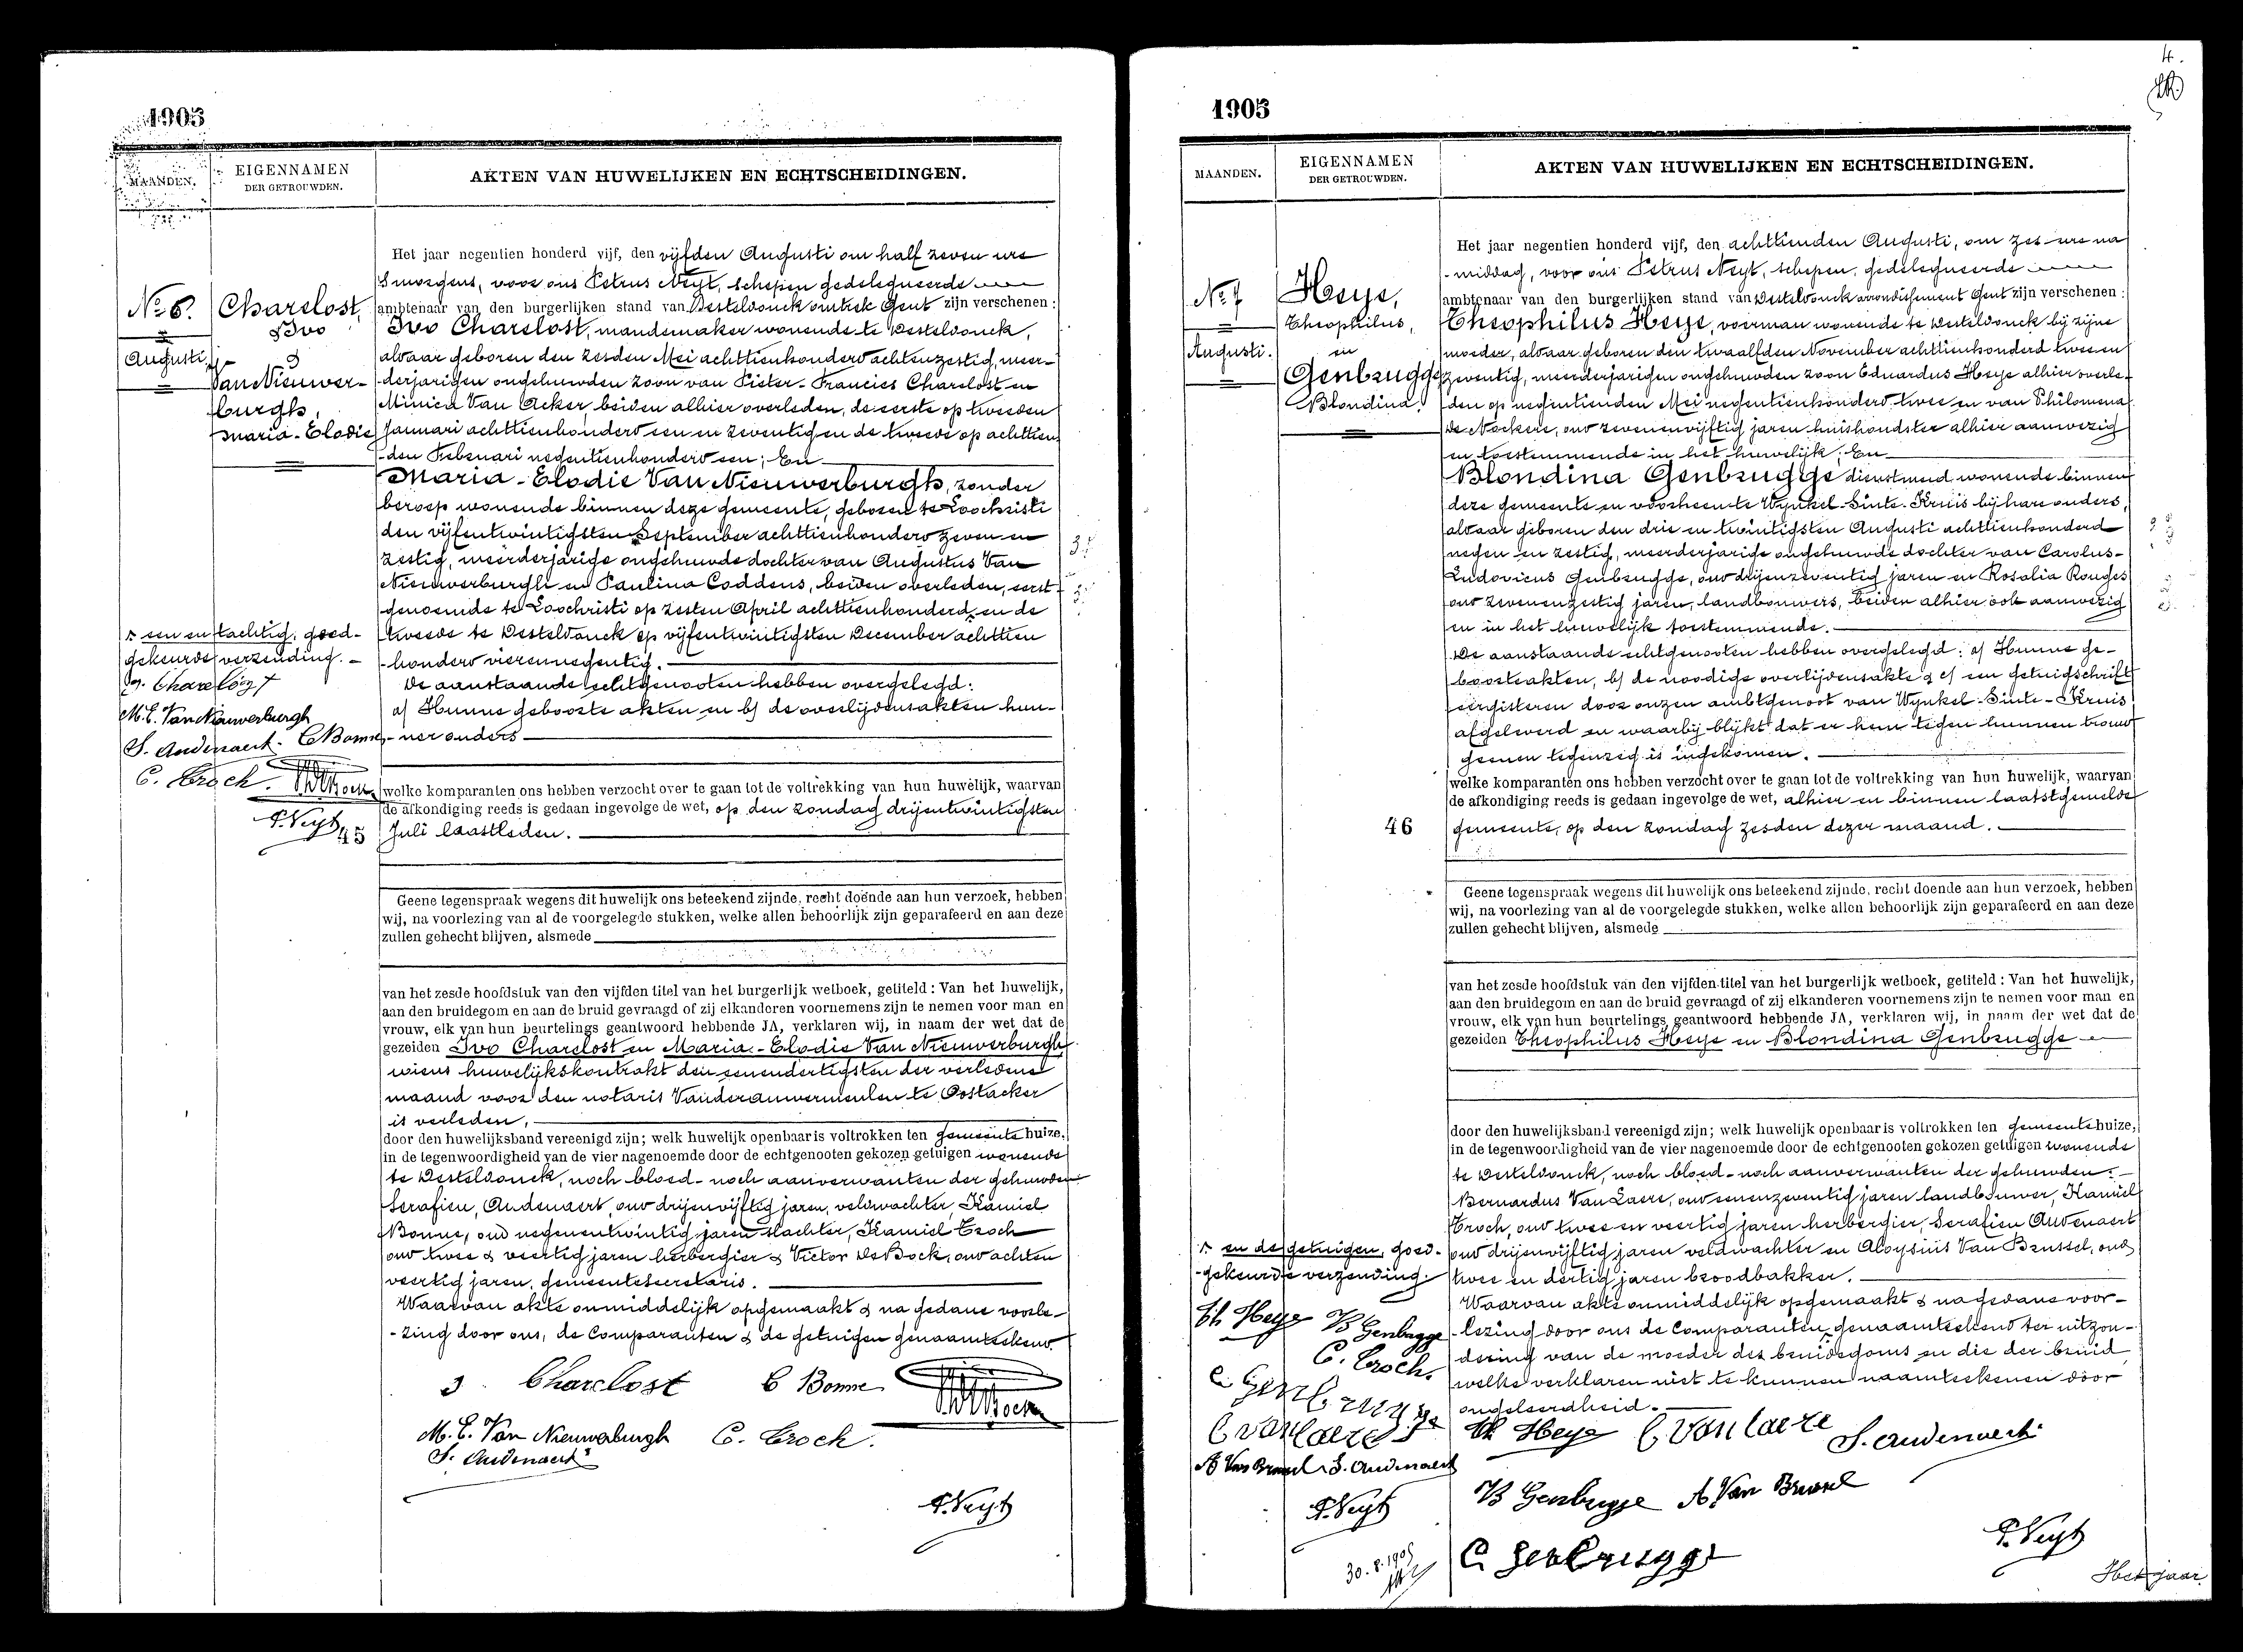 1905
MAANDEN.
EIGENNAMEN
DER GETROUWDEN.
AKTEN VAN HUWELIJKEN EN ECHTSCHEIDINGEN.
No 6.
Augusti
Charelost,
Ivo
&
Van Nieuwer-
burgh,
Maria-Elodie
Het jaar negentien honderd vijf, den vijfden Augusti om half zeven ure
's morgens, voor ons Petrus Neyt, schepen gedelegueerde
ambtenaar van den burgerlijken stand van Desteldonck omtrek Gent zijn verschenen:
Ivo Charelost, mandemaker wonende te Desteldonck,
alwaar geboren den zesden Mei achttienhonderd achtenzestig, meer-
derjarigen ongehuwden zoon van Pieter-Francies Charelost en
Minica Van Acker beiden alhier overleden, de eerste op tweeden
Januari achttienhonderd een en zeventig en de tweede op achttien
-den Februari negentienhonderd een; En
Maria-Elodie Van Nieuwerburgh, zonder
beroep wonende binnen deze gemeente, geboren te Loochristi
den vijfentwintigsten September achttienhonderd zeven en
zestig, meerderjarige ongehuwde dochter van Augustus Van
Nieuwerburgh en Paulina Coddens, beiden overleden, eerst-
genoemde te Loochristi op zesten April achttienhonderd en de
tweede te Desteldonck op vijfentwintigsten December achttien
honderd vierennegentig.
De aanstaande echtgenooten hebben overgelegd:
a) Hunne geboorte akten en b) de overlijdensakten hun-
-ner ouders
een en tachtig, goed-
gekeurde verzending.
Charelost
M. E. Van Nieuwerburgh
S. Audenaert C Bonne
C. Croch.
P. Neyt
45
welke komparanten ons hebben verzocht over te gaan tot de voltrekking van hun huwelijk, waarvan
de afkondiging reeds is gedaan ingevolge de wet, op den zondag drijentwintigsten
Juli laastleden.
Geene tegenspraak wegens dit huwelijk ons beteekend zijnde, recht doende aan hun verzoek, hebben
wij, na voorlezing van al de voorgelegde stukken, welke allen behoorlijk zijn geparafeerd en aan deze
zullen gehecht blijven, alsmede
van het zesde hoofdstuk van den vijfden titel van het burgerlijk wetboek, getiteld: Van het huwelijk,
aan den bruidegom en aan de bruid gevraagd of zij elkanderen voornemens zijn te nemen voor man en
vrouw, elk van hun beurtelings geantwoord hebbende JA, verklaren wij, in naam der wet dat de
gezeiden Ivo Charelost en Maria-Elodie Van Nieuwerburgh,
wiens huwelijkskontrakt den eenendertigsten der verledene
maand voor den notaris Vanderauwermeulen te Oostacker
is verleden,
door den huwelijksband vereenigd zijn; welk huwelijk openbaar is voltrokken ten gemeente huize,
in de tegenwoordigheid van de vier nagenoemde door de echtgenooten gekozen getuigen wonende
te Desteldonck, noch bloed- noch aanverwanten der gehuwden
Serafien, Audenaert, oud drijenvijftig jaren, veldwachter, Kamiel
Bonne, oud negenentwintig jaren slachter, Kamiel Croch
oud twee & veertig jaren herbergier & Victor De Bock, oud achten
veertig jaren, gemeentesecretaris.
Waarvan akte onmiddelijk opgemaakt & na gedane voorle-
-zing door ons, de Comparanten & de getuigen genaamteekend.
J Charelost C Bonne
M. E. Van Nieuwerburgh C. Croch.
S. Audenaert
P. Neyt
4.
1905
MAANDEN.
EIGENNAMEN
DER GETROUWDEN.
AKTEN VAN HUWELIJKEN EN ECHTSCHEIDINGEN.
No 7
Augusti.
Heye,
Theophilus,
en
Genbrugge
Blondina.
Het jaar negentien honderd vijf, den achttienden Augusti, om zes ure na
-middag, voor ons Petrus Neyt, schepen, gedelegueerde
ambtenaar van den burgerlijken stand van Desteldonck arrondissement Gent zijn verschenen:
Theophilus Heye, voerman wonende te Desteldonck bij zijne
moeder, alwaar geboren den twaalfden November achttienhonderd twee en
zeventig, meerderjarigen ongehuwden zoon Eduardus Heye alhier overle-
den op negentienden Mei negentienhonderd twee en van Philomena
De Nockere, oud zevenenvijftig jaren huishoudster alhier aanwezig
en toestemmende in het huwelijk; En
Blondina Genbrugge dienstmeid wonende binnen
deze gemeente en voorheen te Wynkel-Sinte-Kruis bij hare ouders,
alwaar geboren den drie en twintigsten Augusti achttienhonderd
negen en zestig, meerderjarige ongehuwde dochter van Carolus-
Ludovicus Genbrugge, oud drijenzeventig jaren en Rosalia Rouges
oud zevenenzestig jaren, landbouwers, beiden alhier ook aanwezig
en in het huwelijk toestemmende.
De aanstaande echtgenooten hebben overgelegd: a) Hunne ge-
boorteakten, b) de noodige overlijdensakte & c) een getuigschrift
eergisteren door onzen ambtgenoot van Wynkel-Sinte-Kruis
afgeleverd en waarbij blijkt dat er hem tegen hunnen trouw
geenen tegenzeg is ingekomen.
welke komparanten ons hebben verzocht over te gaan tot de voltrekking van hun huwelijk, waarvan
de afkondiging reeds is gedaan ingevolge de wet, alhier en binnen laatstgemelde
46
gemeente, op den zondag zesden dezer maand.
Geene tegenspraak wegens dit huwelijk ons beteekend zijnde, recht doende aan hun verzoek, hebben
wij, na voorlezing van al de voorgelegde stukken, welke allen behoorlijk zijn geparafeerd en aan deze
zullen gehecht blijven, alsmede
van het zesde hoofdstuk van den vijfden titel van het burgerlijk wetboek, getiteld: Van het huwelijk,
aan den bruidegom en aan de bruid gevraagd of zij elkanderen voornemens zijn te nemen voor man en
vrouw, elk van hun beurtelings geantwoord hebbende JA, verklaren wij, in naam der wet dat de
gezeiden Theophilus Heye en Blondina Genbrugge
door den huwelijksband vereenigd zijn; welk huwelijk openbaar is voltrokken ten gemeentehuize,
in de tegenwoordigheid van de vier nagenoemde door de echtgenooten gekozen getuigen wonende
te Desteldonck, noch bloed- noch aanverwanten der gehuwden:
Bernardus Van Laere, oud eenenzeventig jaren landbouwer, Kamiel
Croch, oud twee en veertig jaren herbergier, Serafien Audenaert
oud drijenvijftig jaren veldwachter en Aloysius Van Brussel, oud
twee en dertig jaren broodbakker.
Waarvan akte onmiddelijk opgemaakt & na gedane voor-
-lezing door ons de Comparanten genaamteekend ter uitzon-
dering van de moeder des bruidegoms en die der bruid,
welke verklaren niet te kunnen naamteekenen door
ongeleerdheid.
en de getuigen, goed-
-gekeurde verzending.
Th Heye B Genbrugge
C. Croch.
C Genbrugge
C Van Laere
A Van Brussel S. Audenaert
P. Neyt
30.8.1905
Th Heye C Van Laere S. Audenaert
B Genbrugge A. Van Brussel
P. Neyt
C Genbrugge
Het jaar